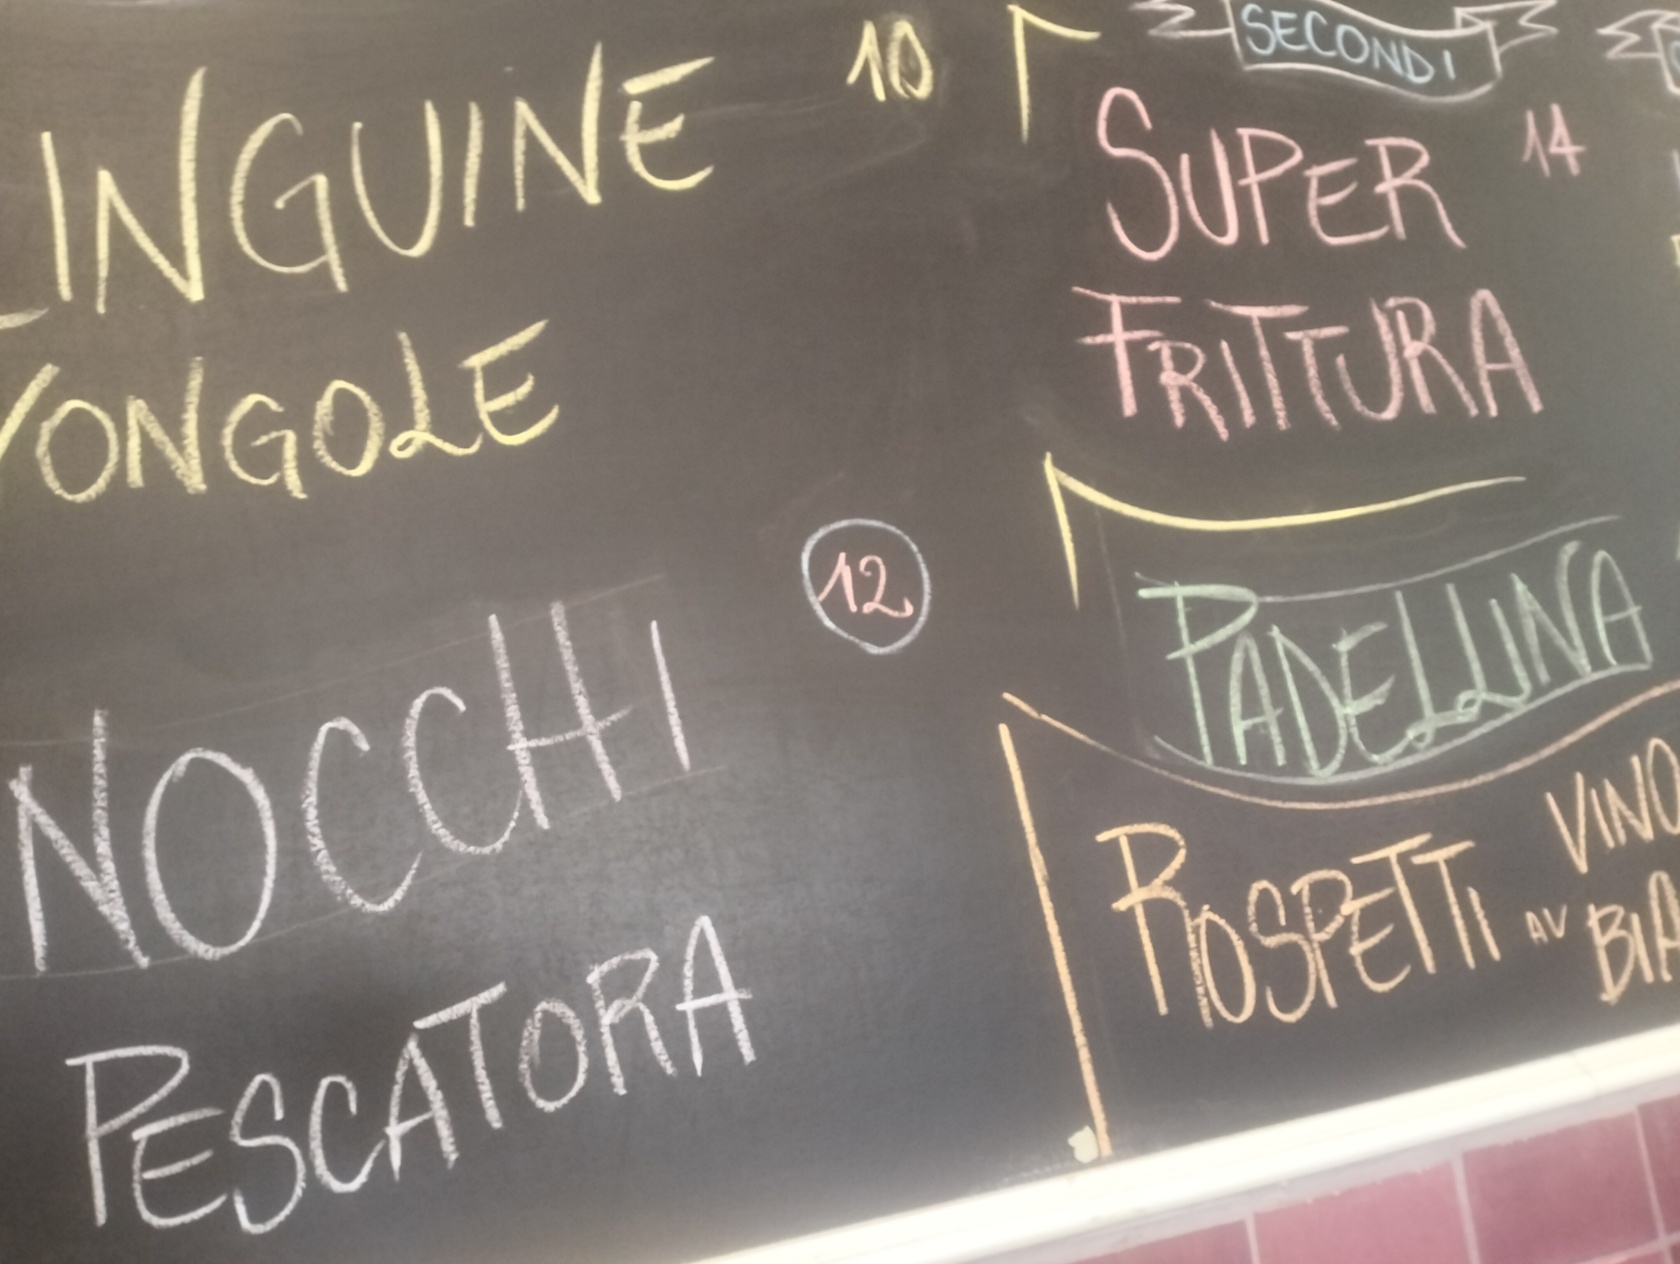 LINGUINE 10
VONGOLE
NOCCHI 12
PESCATORA
SECONDI
SUPER 14
FRITTURA
PADELLINA
ROSPETTI AV VINO
BIA